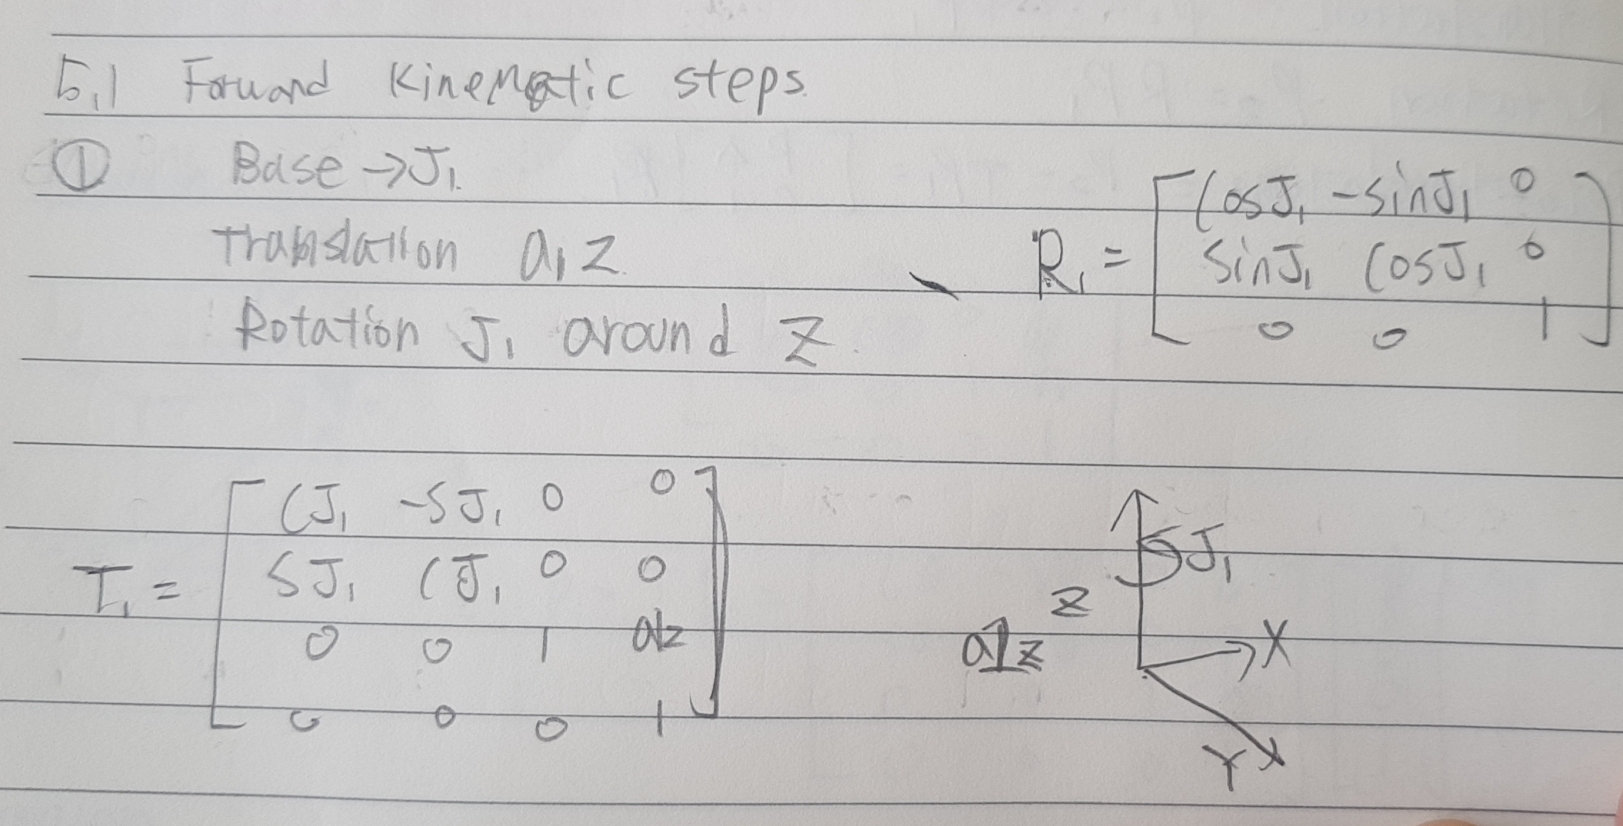 5.1 Forward Kinematic steps
① Base → J₁
Translation a₁z
Rotation J₁ around Z
R₁ =
CosJ₁ -sinJ₁ 0
sinJ₁ CosJ₁ 0
0 0 1
T₁ =
CJ₁ -SJ₁ 0 0
SJ₁ CJ₁ 0 0
0 0 1 a1z
0 0 0 1
J₁
Z
a1z
X
Y